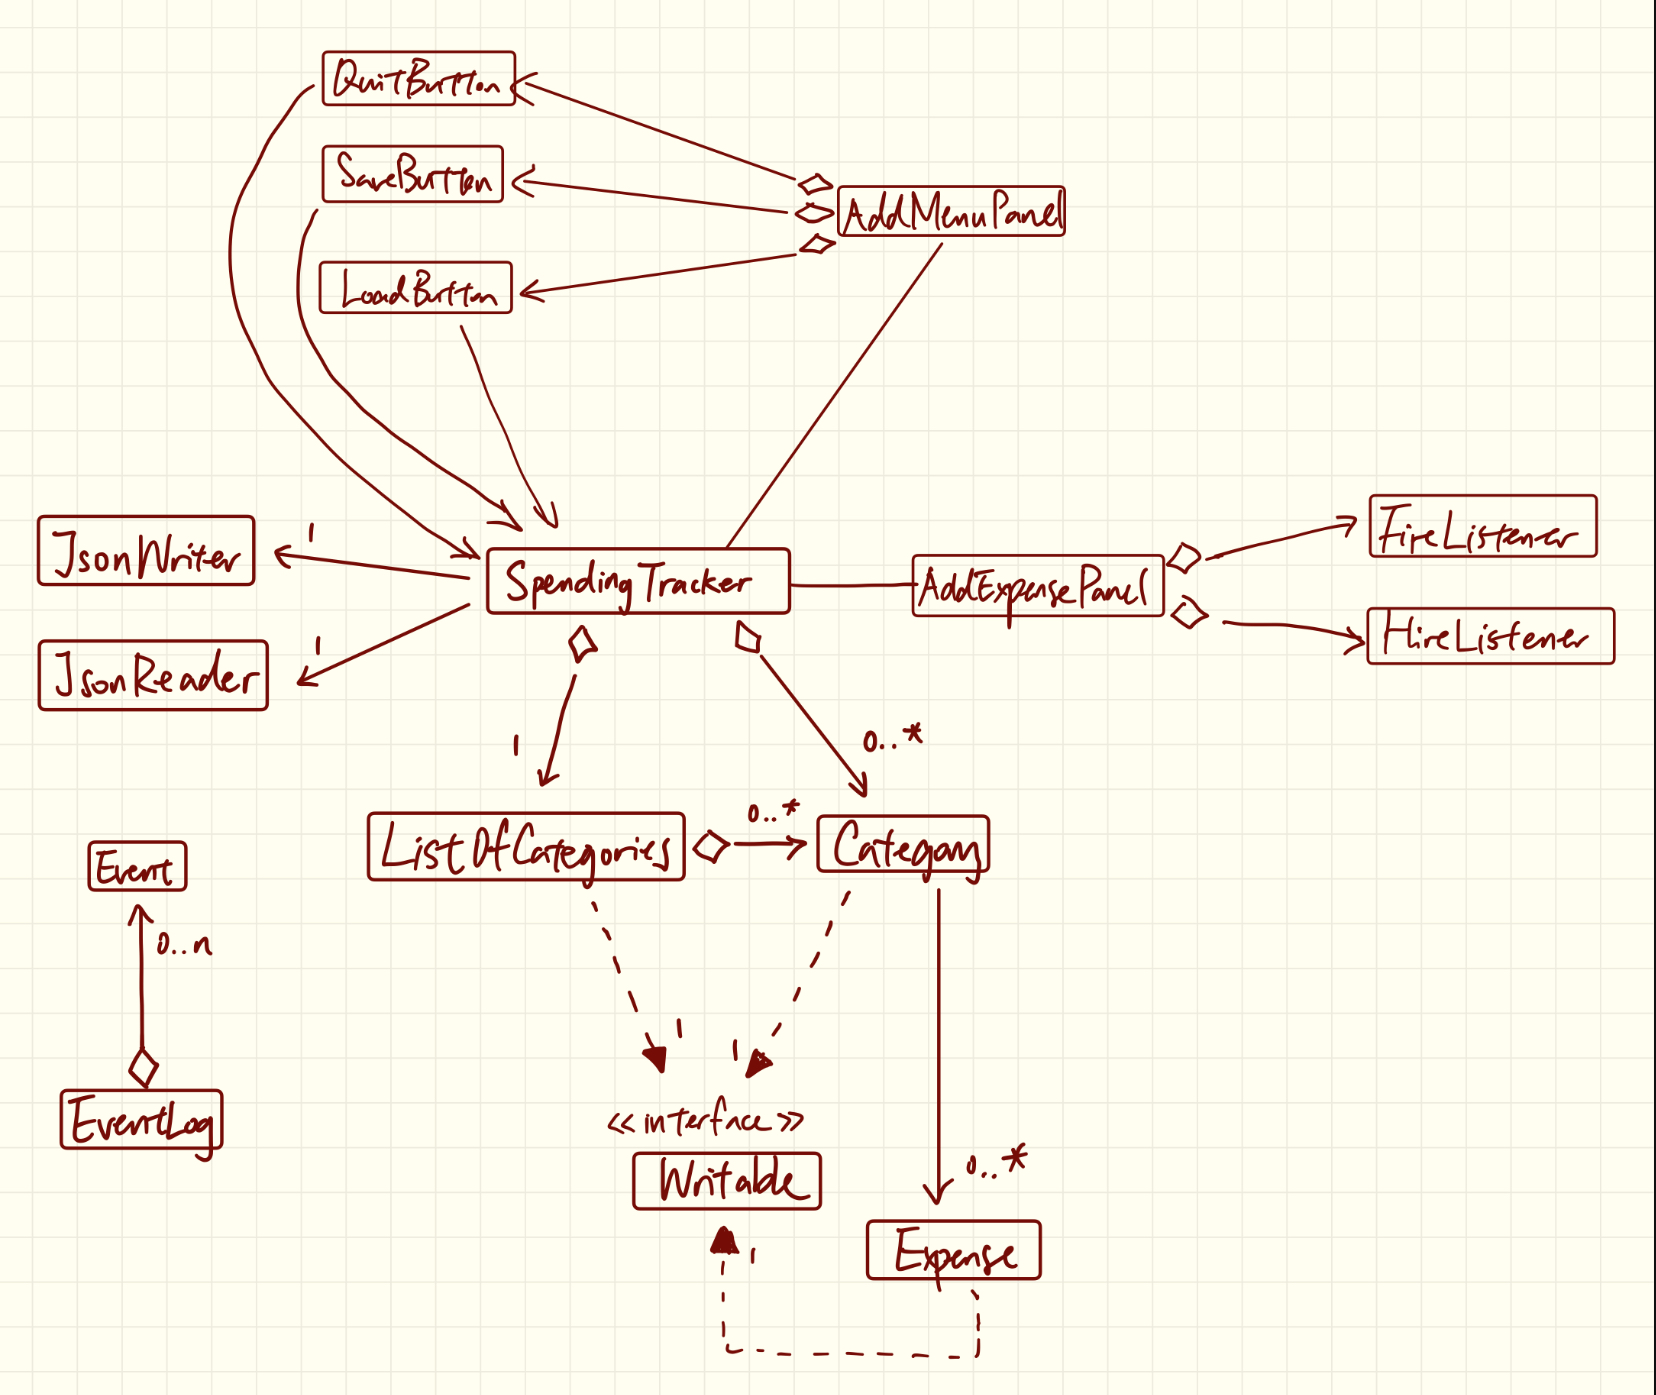 QuitButton
SaveButton
AddMenuPanel
LoadButton
JsonWriter
1
SpendingTracker
AddExpensePanel
FireListener
HireListener
JsonReader
1
1
0..*
ListOfCategories
0..*
Category
Event
0..n
EventLog
1
1
<<interface>>
Writable
0..*
1
Expense